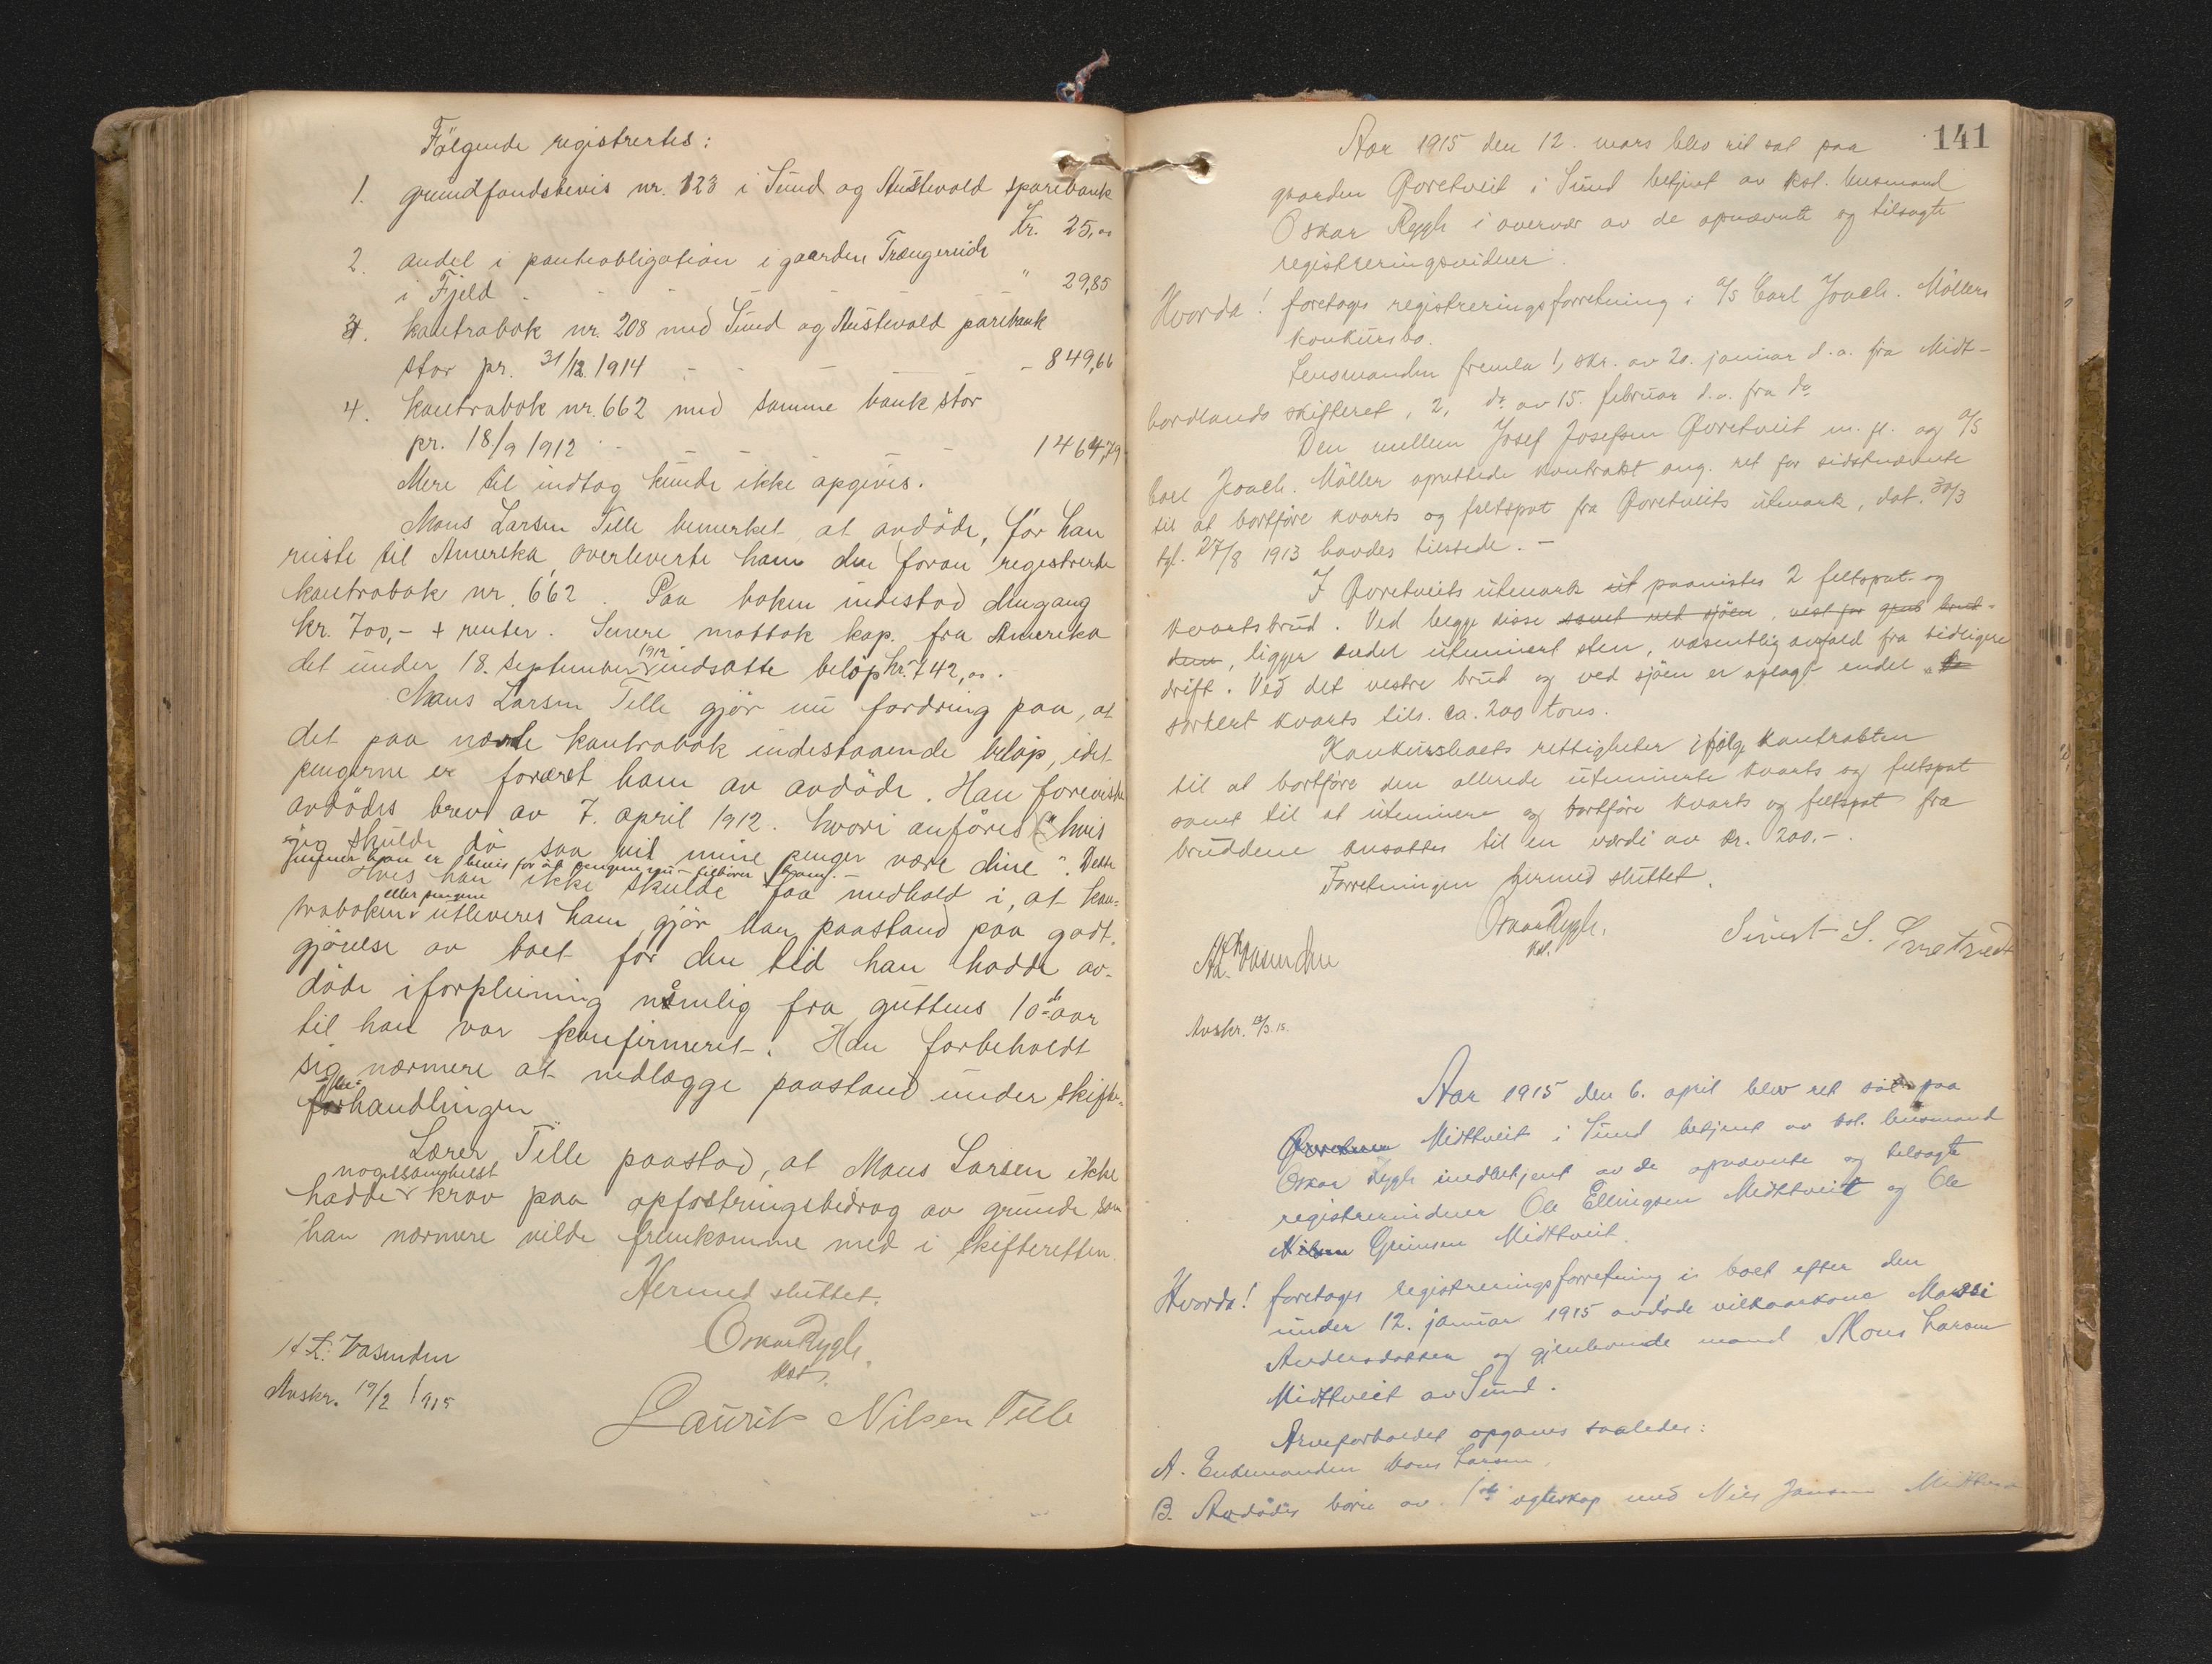 Følgende registrertes:
1. grundfondsbevis nr. 123 i Sund og Austevold sparebank
Kr. 25,00
2. andel i panteobligation i gaarden Trængereide
i Fjeld - - - - " 29,85
3. kontrabok nr. 208 med Sund og Austevold parebank
stor pr. 31/12 1914 - - - - - 849,66
4. kontrabok nr. 662 med samme bank stor
pr. 18/9 1912 - - - - 1464,79
Mere til indtag kunde ikke opgives.
Mons Larsen Telle bemerket, at avdöde, för han
reiste til Amerika, overleverte ham den foran registrerte
kontrabok nr. 662. Paa boken indestod dengang
kr. 700,- + renter. Senere mottok kap. fra Amerika
det under 18. september 1912 indsatte belöp kr. 742,00.
Mons Larsen Telle gjör nu fordring paa, at
det paa nævnte kontrabok indestaaende belöp, idet
pengerne er foræret ham av avdöde. Han foreviste
avdödes brev av 7. april 1912. hvori anföres "hvis
jeg skulde dö saa vil mine penger være dine". Dette
mener han er bevis for at pengerne tilhörer ham. -
Hvis han ikke skulde faa medhold i, at kon-
traboken eller pengene utleveres ham, gjör han paastand paa godt-
gjörelse av boet for den tid han hadde av-
döde i forpleining nemlig fra guttens 10de aar
til han var konfirmeret. Han forbeholdt
sig nærmere at nedlægge paastand under skifte-
behandlingen
Lærer Telle paastod, at Mons Larsen ikke
hadde nogetsomhelst krav paa opfostringsbidrag av grunde som
han nærmere vilde fremkomme med i skifteretten.
Hermed sluttet.
Oskar Rygh
kst.
H L. Vasenden
Avskr. 19/2 1915
Laurits Nilsen Telle
141
Aar 1915 den 12. mars blev ret sat paa
gaarden Tveitveit i Sund betjent av kst. lensmand
Oskar Rygh i overvær av de opnævnte og tilsagte
registreringsvidner.
Hvorda! foretages registreringsforretning i A/S Carl Joach. Möllers
konkursbo.
Lensmanden fremla 1, skr. av 20. januar d.a. fra Midt-
hordlands skifteret, 2, do av 15. februar d.a. fra do
Den mellem Josef Josefsen m. fl. og A/S
Carl Joach. Möller oprettede kontrakt ang. ret for sidstnævnte
til at bortföre kvarts og feltspat fra utmark, dat. 30/3
tgl. 27/8 1913 havdes tilstede. -
I utmark ut paavistes 2 feltspat- og
kvartsbrud. Ved begge disse samt ved sjöen, vest for brud-
dene, ligger endel utminert sten, væsentlig avfald fra tidligere
drift. Ved det vestre brud og ved sjöen er oplagt endel
sortert kvarts tils. ca. 200 tons.
Konkursboets rettigheter ifölge kontrakten
til at bortföre den allerede utminerte kvarts og feltspat
samt til at utminere og bortföre kvarts og feltspat fra
bruddene ansattes til en værdi av kr. 200.-.
Forretningen hermed sluttet.
Oskar Rygh.
kst.
Vasenden
Sivert S.
Avskr. 12/3 15.
Aar 1915 den 6. april blev ret sat paa
Midttveit i Sund betjent av kst. lensmand
Oskar Rygh medbetjent av de opnævnte og tilsagte
registrervidner Ole Ellingsen Midttveit og Ole
Nilsen Grimsen Midttveit.
Hvorda! foretages registreringsforretning i boet efter den
under 12. januar 1915 avdöde vilkaarkone
Andersdatter og gjenlevende mand Mons Larsen
Midttveit av Sund.
Arveforholdet opgaves saaledes:
A. Enkemanden Mons Larsen.
B. Avdödes börn av 1ste egteskap med Nils Jansen Midttveit